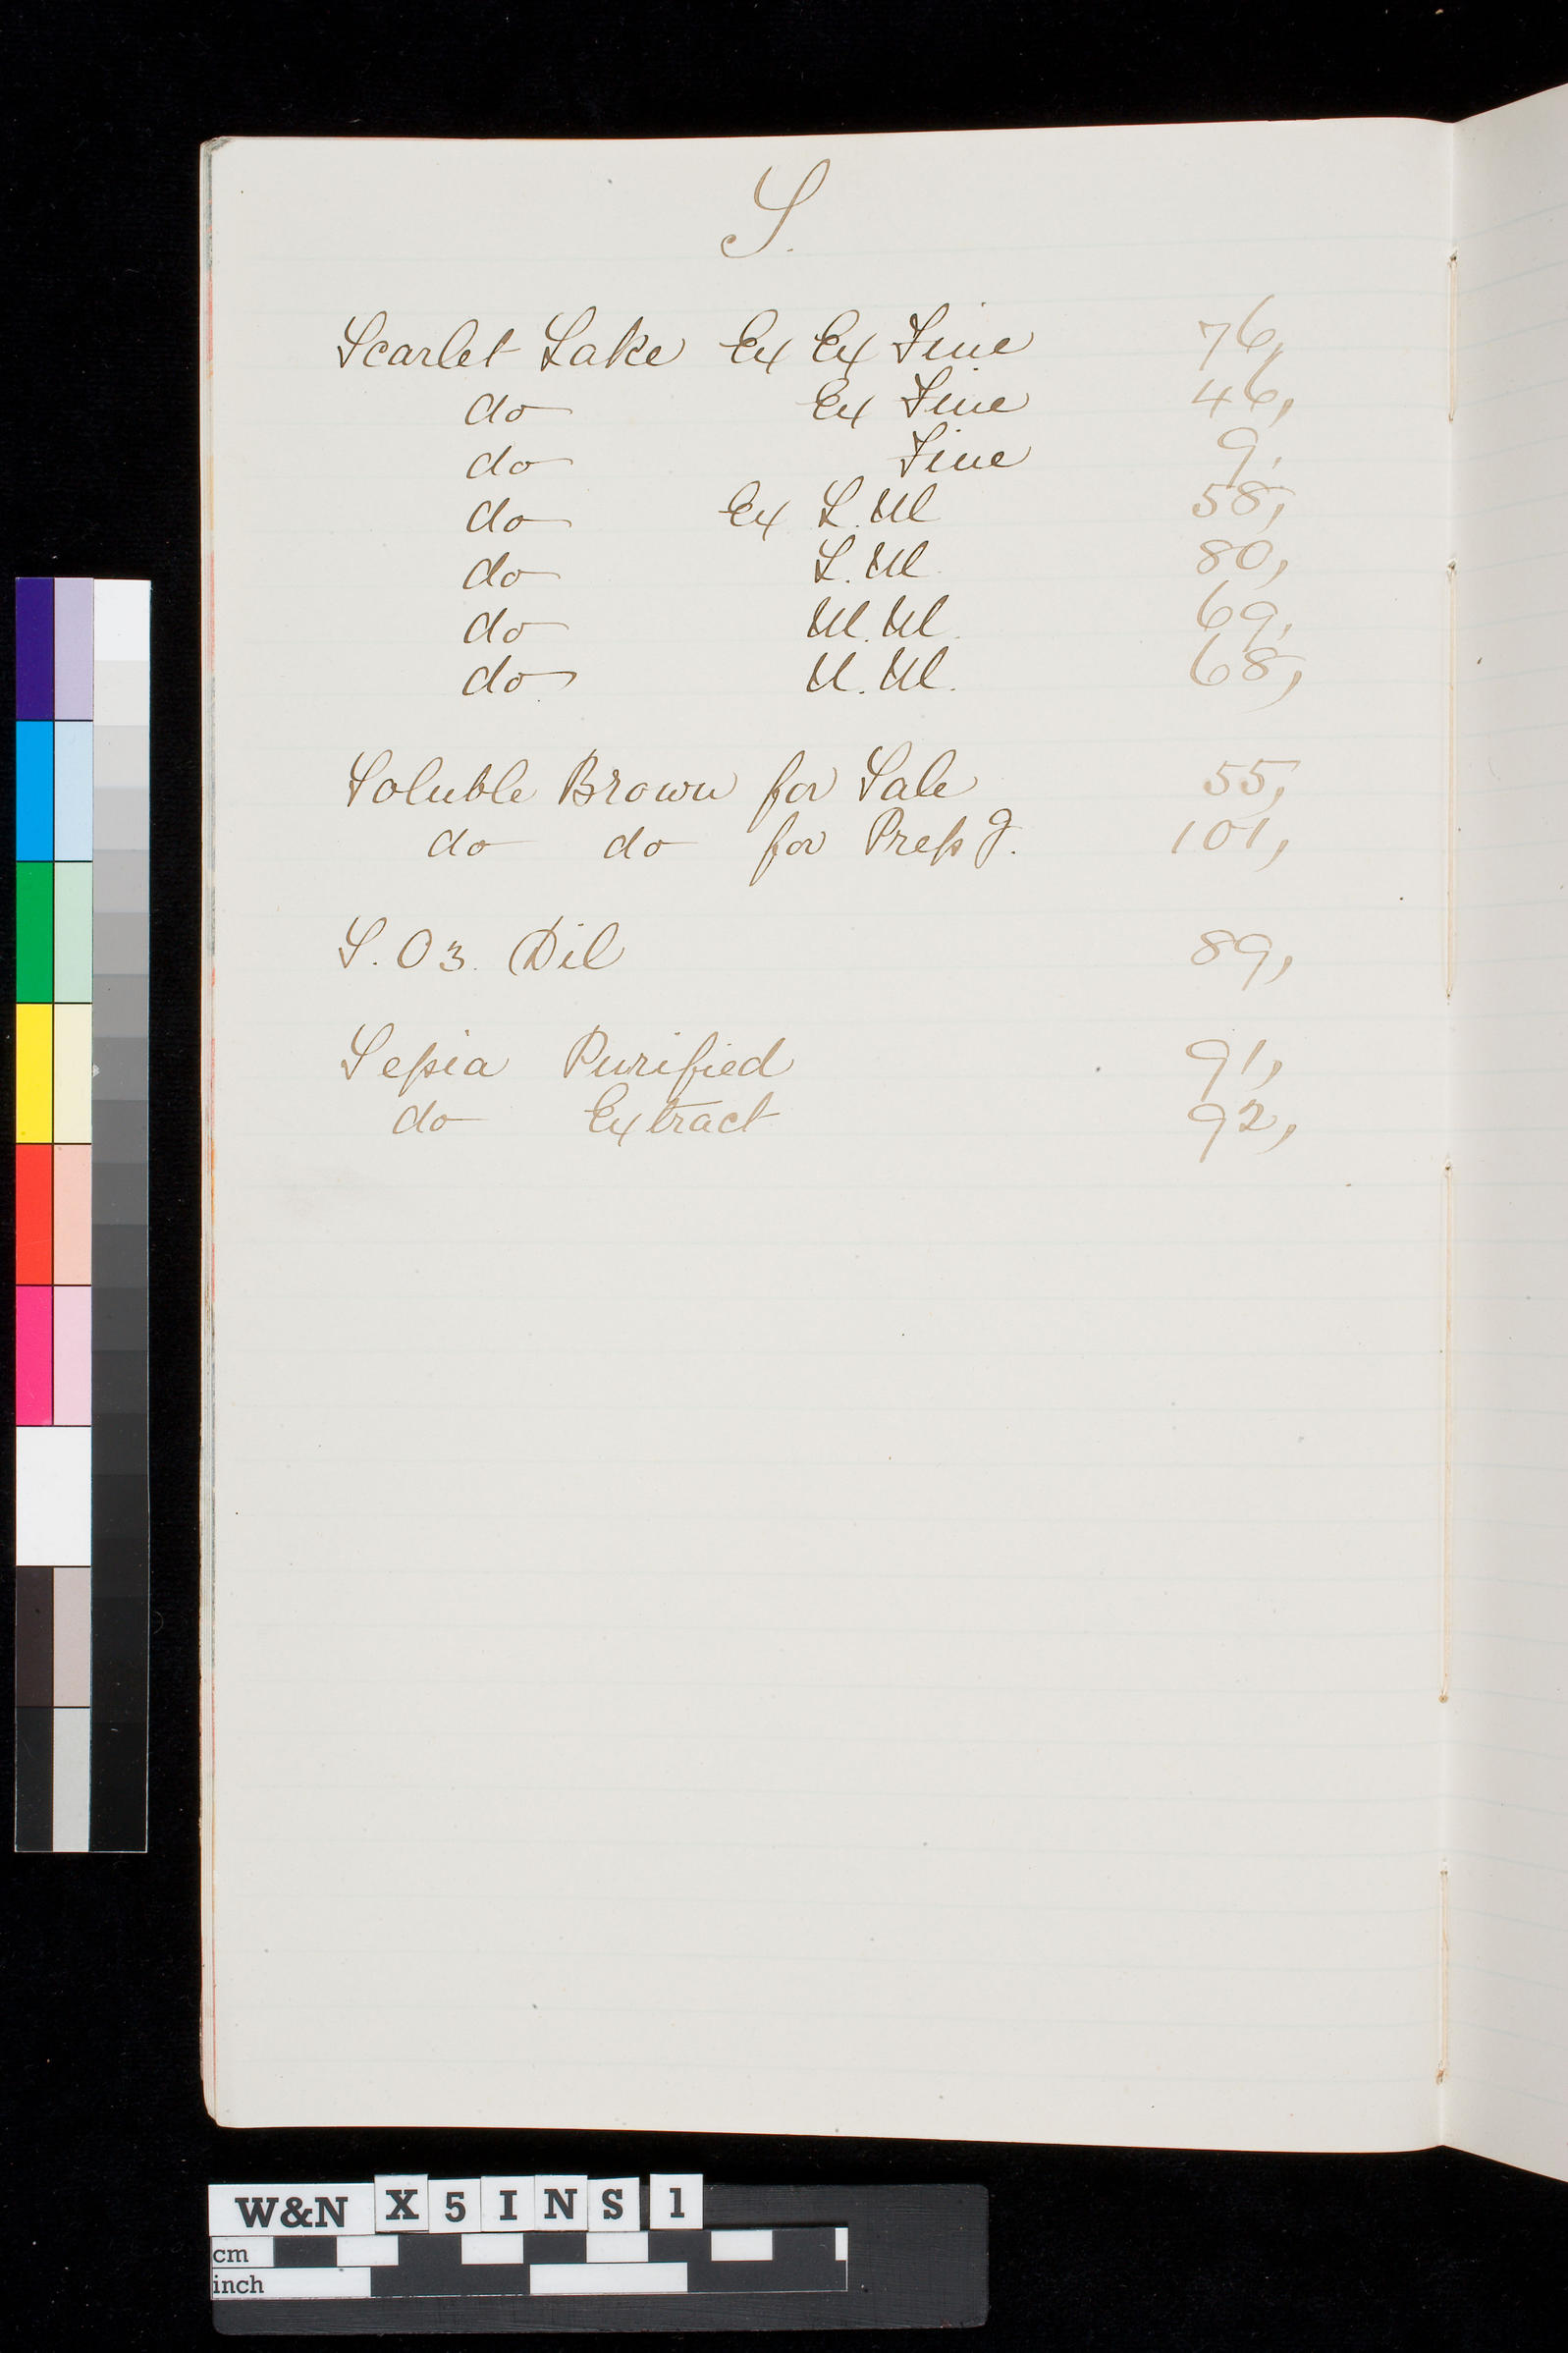 S.
Scarlet Lake Ex Ex Fine 76,
do Ex Fine 46,
do Fine 9,
do Ex L.M 58,
do L.M. 80,
do M.M. 69,
do U.M. 68,
Soluble Brown for Sale 55,
do do for Prepg. 101,
S.O3. Dil 89,
Sepia Purified 91,
do Extract 92,
W&N X 5 I N S 1
cm
inch